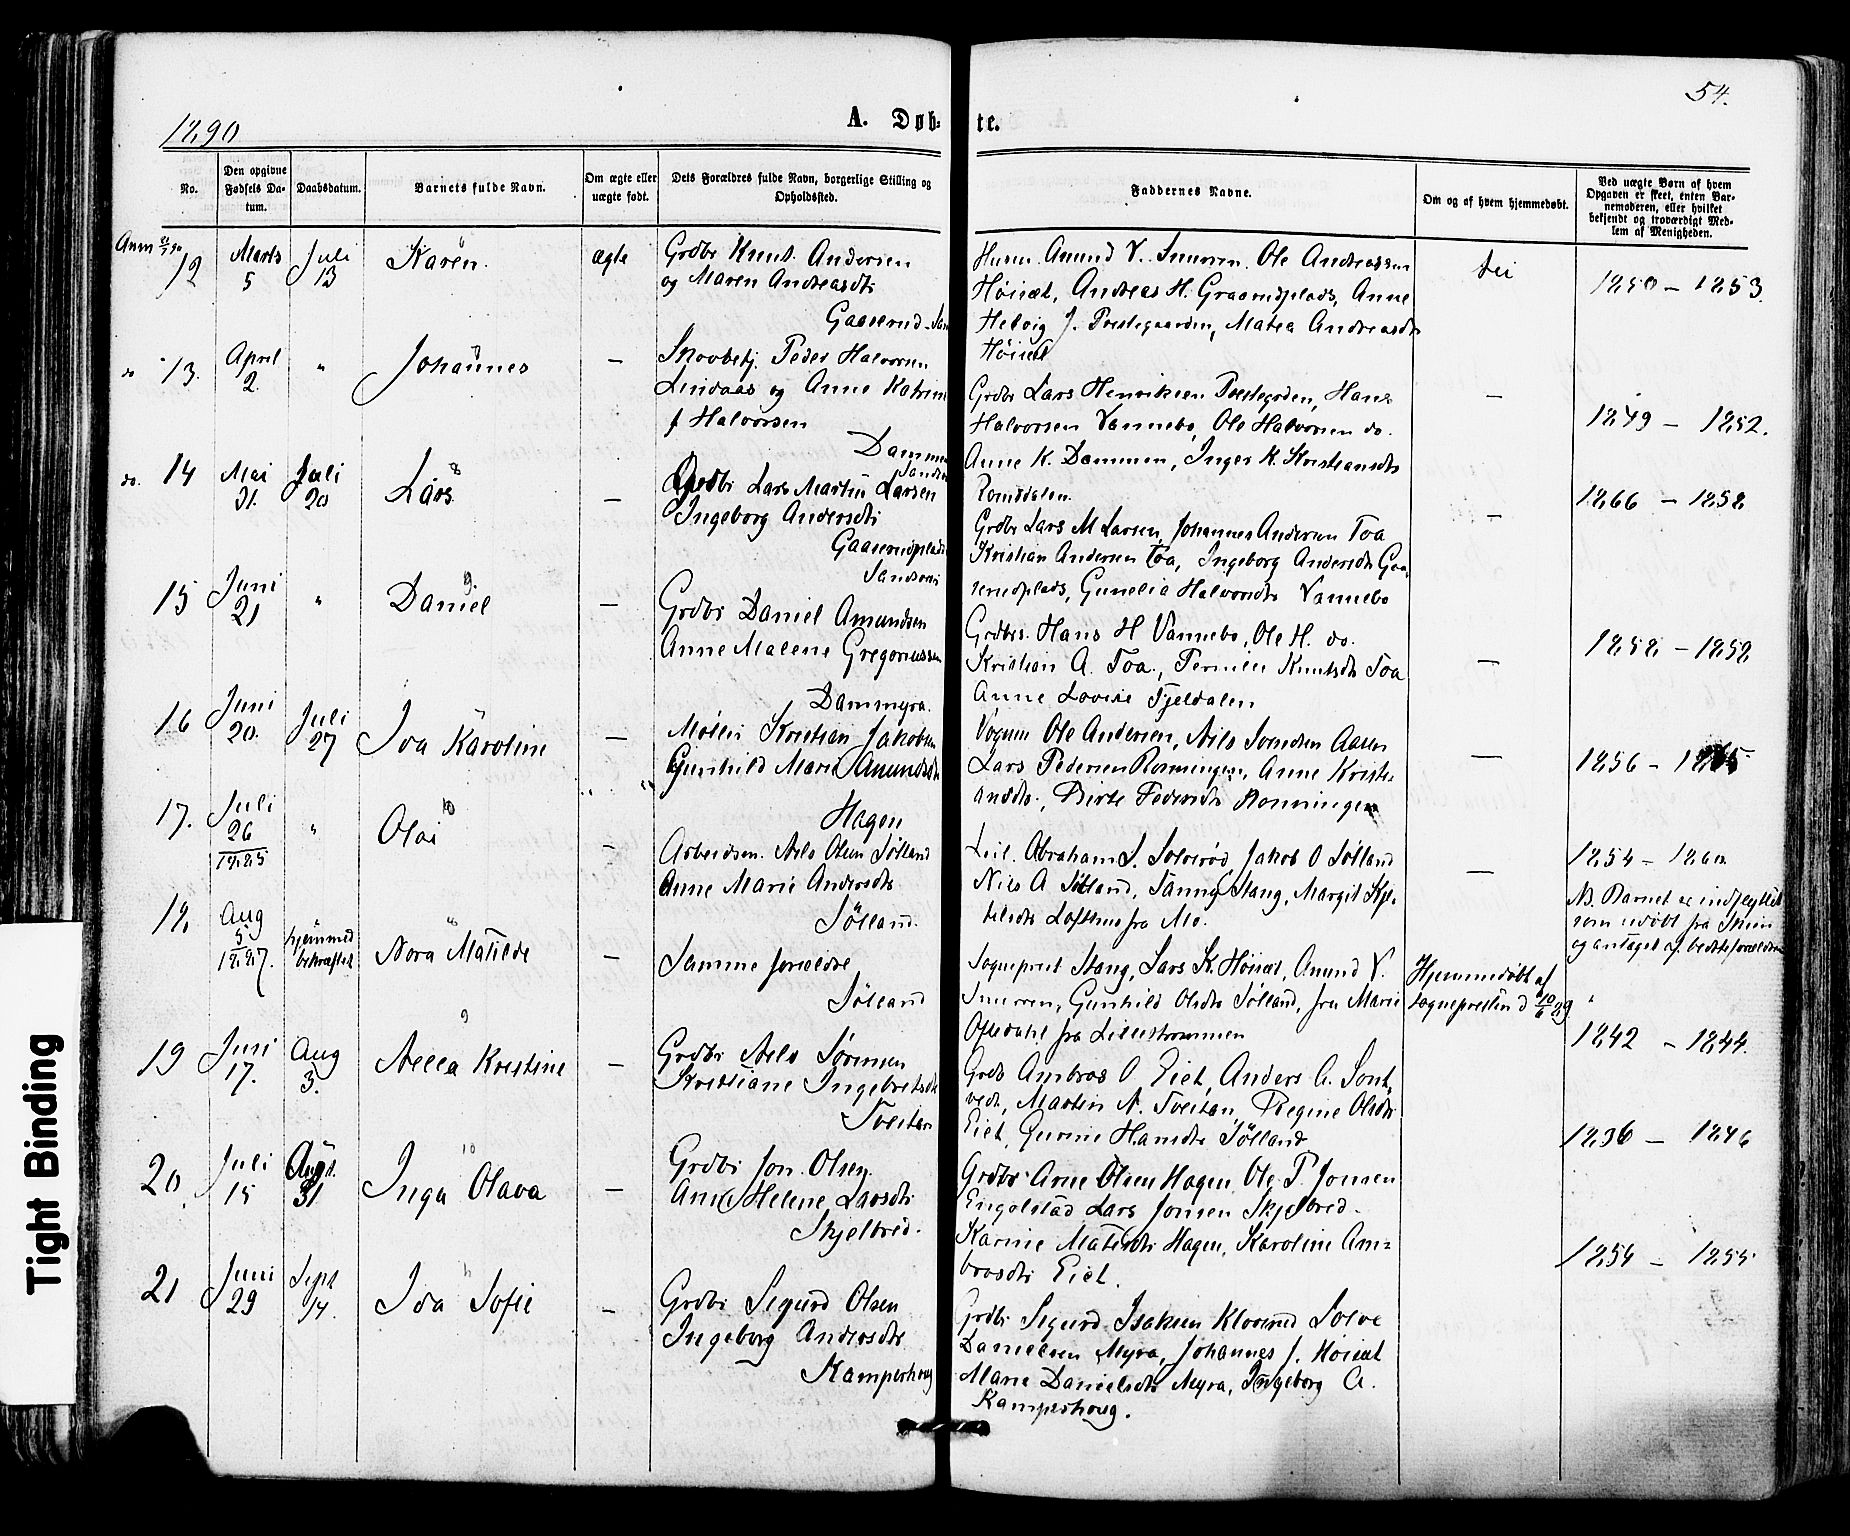 54.
1890
A. Døb- te.
No.
Den opgivne Fødsels Da-tum.
Daabsdatum.
Barnets fulde Navn.
Om ægte eller uægte født.
Dets Forældres fulde Navn, borgerlige Stilling og Opholdssted.
Faddernes Navne.
Om og af hvem hjemmedøbt.
Ved uægte Børn af hvem Opgaven er skeet, enten Bar-nemoderen, eller hvilket bekjendt og troværdigt Med-lem af Menigheden.
12
Marts 5
Juli 13
Karen
ægte
Grdbr Knut Andersen
og Maren Andreasdtr
Gaaserud
Amund V. Snurren. Ole Andreassen
Høisæt, Andreas H. Graanidplads, Anne
Helvig J. Prestegaarden, Matea Andreasdtr
Høisæt
1850 – 1853.
do 13.
April 2.
"
Johannes
—
Skovbetj. Peder Halvorsen
Lindaas og Anne Katrine
f Halvorsen
Dammen
Grdbr Lars Henriksen Prestegrden, Hans
Halvorsen Vannebo, Ole Halvorsen do.
Anne K. Dammen, Inger K. Kristiansdtr
Romsdalen.
—
1849 – 1852.
do. 14
Mai 31.
Juli 20
Lars
—
Grdbr Lars Martin Larsen
Ingeborg Andersdtr
Gaaserudplads
Grdbr Lars M Larsen, Johannes Andersen Toa
Kristian Andersen Toa, Ingeborg Andersdtr Gaa-
serudplads, Gunelia Halvorsdtr Vannebo
—
1866 – 1858
15
Juni 21
"
Daniel
—
Grdbr Daniel Amundsen
Anne Malene Gregoriussen
Dammyra.
Grdbr. Hans H Vannebo, Ole H. do.
Kristian A. Toa, Pernille Knutsdtr Toa
Anne Lovise Fjeldalen
—
1858 – 1852
16
Juni 20.
Juli 27
Ida Karoline
—
Møller Kristian Jakobsen
Gunhild Marie Amundsdtr
Hagen
Vognm Ole Andersen, Nils Svendsen Aasen
Lars Pedersen Rønningen, Anne Kristi-
ansdtr, Birte Pedersdtr Rønningen
—
1856 – 1865
17.
Juli 26 1885
"
Olai
—
Arbeidsm. Nils Olsen Sølland
Anne Marie Andersdtr
Sølland.
Abraham S. Solverød, Jakob O Sølland
Nils A Sølland, Fanny Stang, Margit Kje-
tilsdtr Lofthus fra Mo.
—
1854 – 1860.
NB. Barnet er indflyttet
som udøbt fra Skien
og antaget af bedsteforældrene
18.
Aug 5 1887.
hjemmed bekræftet
Nora Matilde
—
Samme forældre
Sølland
Sogneprest Stang, Lars K. Høisæt, Amund V.
Snurren, Gunhild Olsdtr Sølland, fru Marie
Oftedahl fra Lillestrømmen
Hjemmedøbt af
sognepresten d 10/6 89
"
19
Juni 17.
Aug 3.
Aella Kristine
—
Grdbr Nils Sørensen
Kristiane Ingebretsdtr
Tveitan
Grdb Ambros O Eiet, Anders A. Sont-
vedt, Martin N. Tveitan, Regine Olsdtr
Eiet, Gurine Hansdtr Sølland
1842 – 1844.
20
Juli 15
Augst. 31
Inga Olava
—
Grdbr Jon Olsen
Anne Helene Larsdtr
Skjelbred.
Grdbr Arne Olsen Hagen, Ole P. Jonsen
Engelstad Lars Jonsen Skjelbred.
Karine Matisdtr Hagen, Karoline Am-
brosdtr Eiet.
1836 – 1846
21
Juni 29
Sept 14.
Ida Sofie
—
Grdbr Sigurd Olsen
Ingeborg Andersdtr
Kamperhoug
Grdbr Sigurd Isaksen Kloverud Solve
Danielsen Myra, Johannes J. Høisæt
Maria Danielsdtr Myra, Ingeborg A.
Kamperhoug.
1854 – 1855
Tight Binding